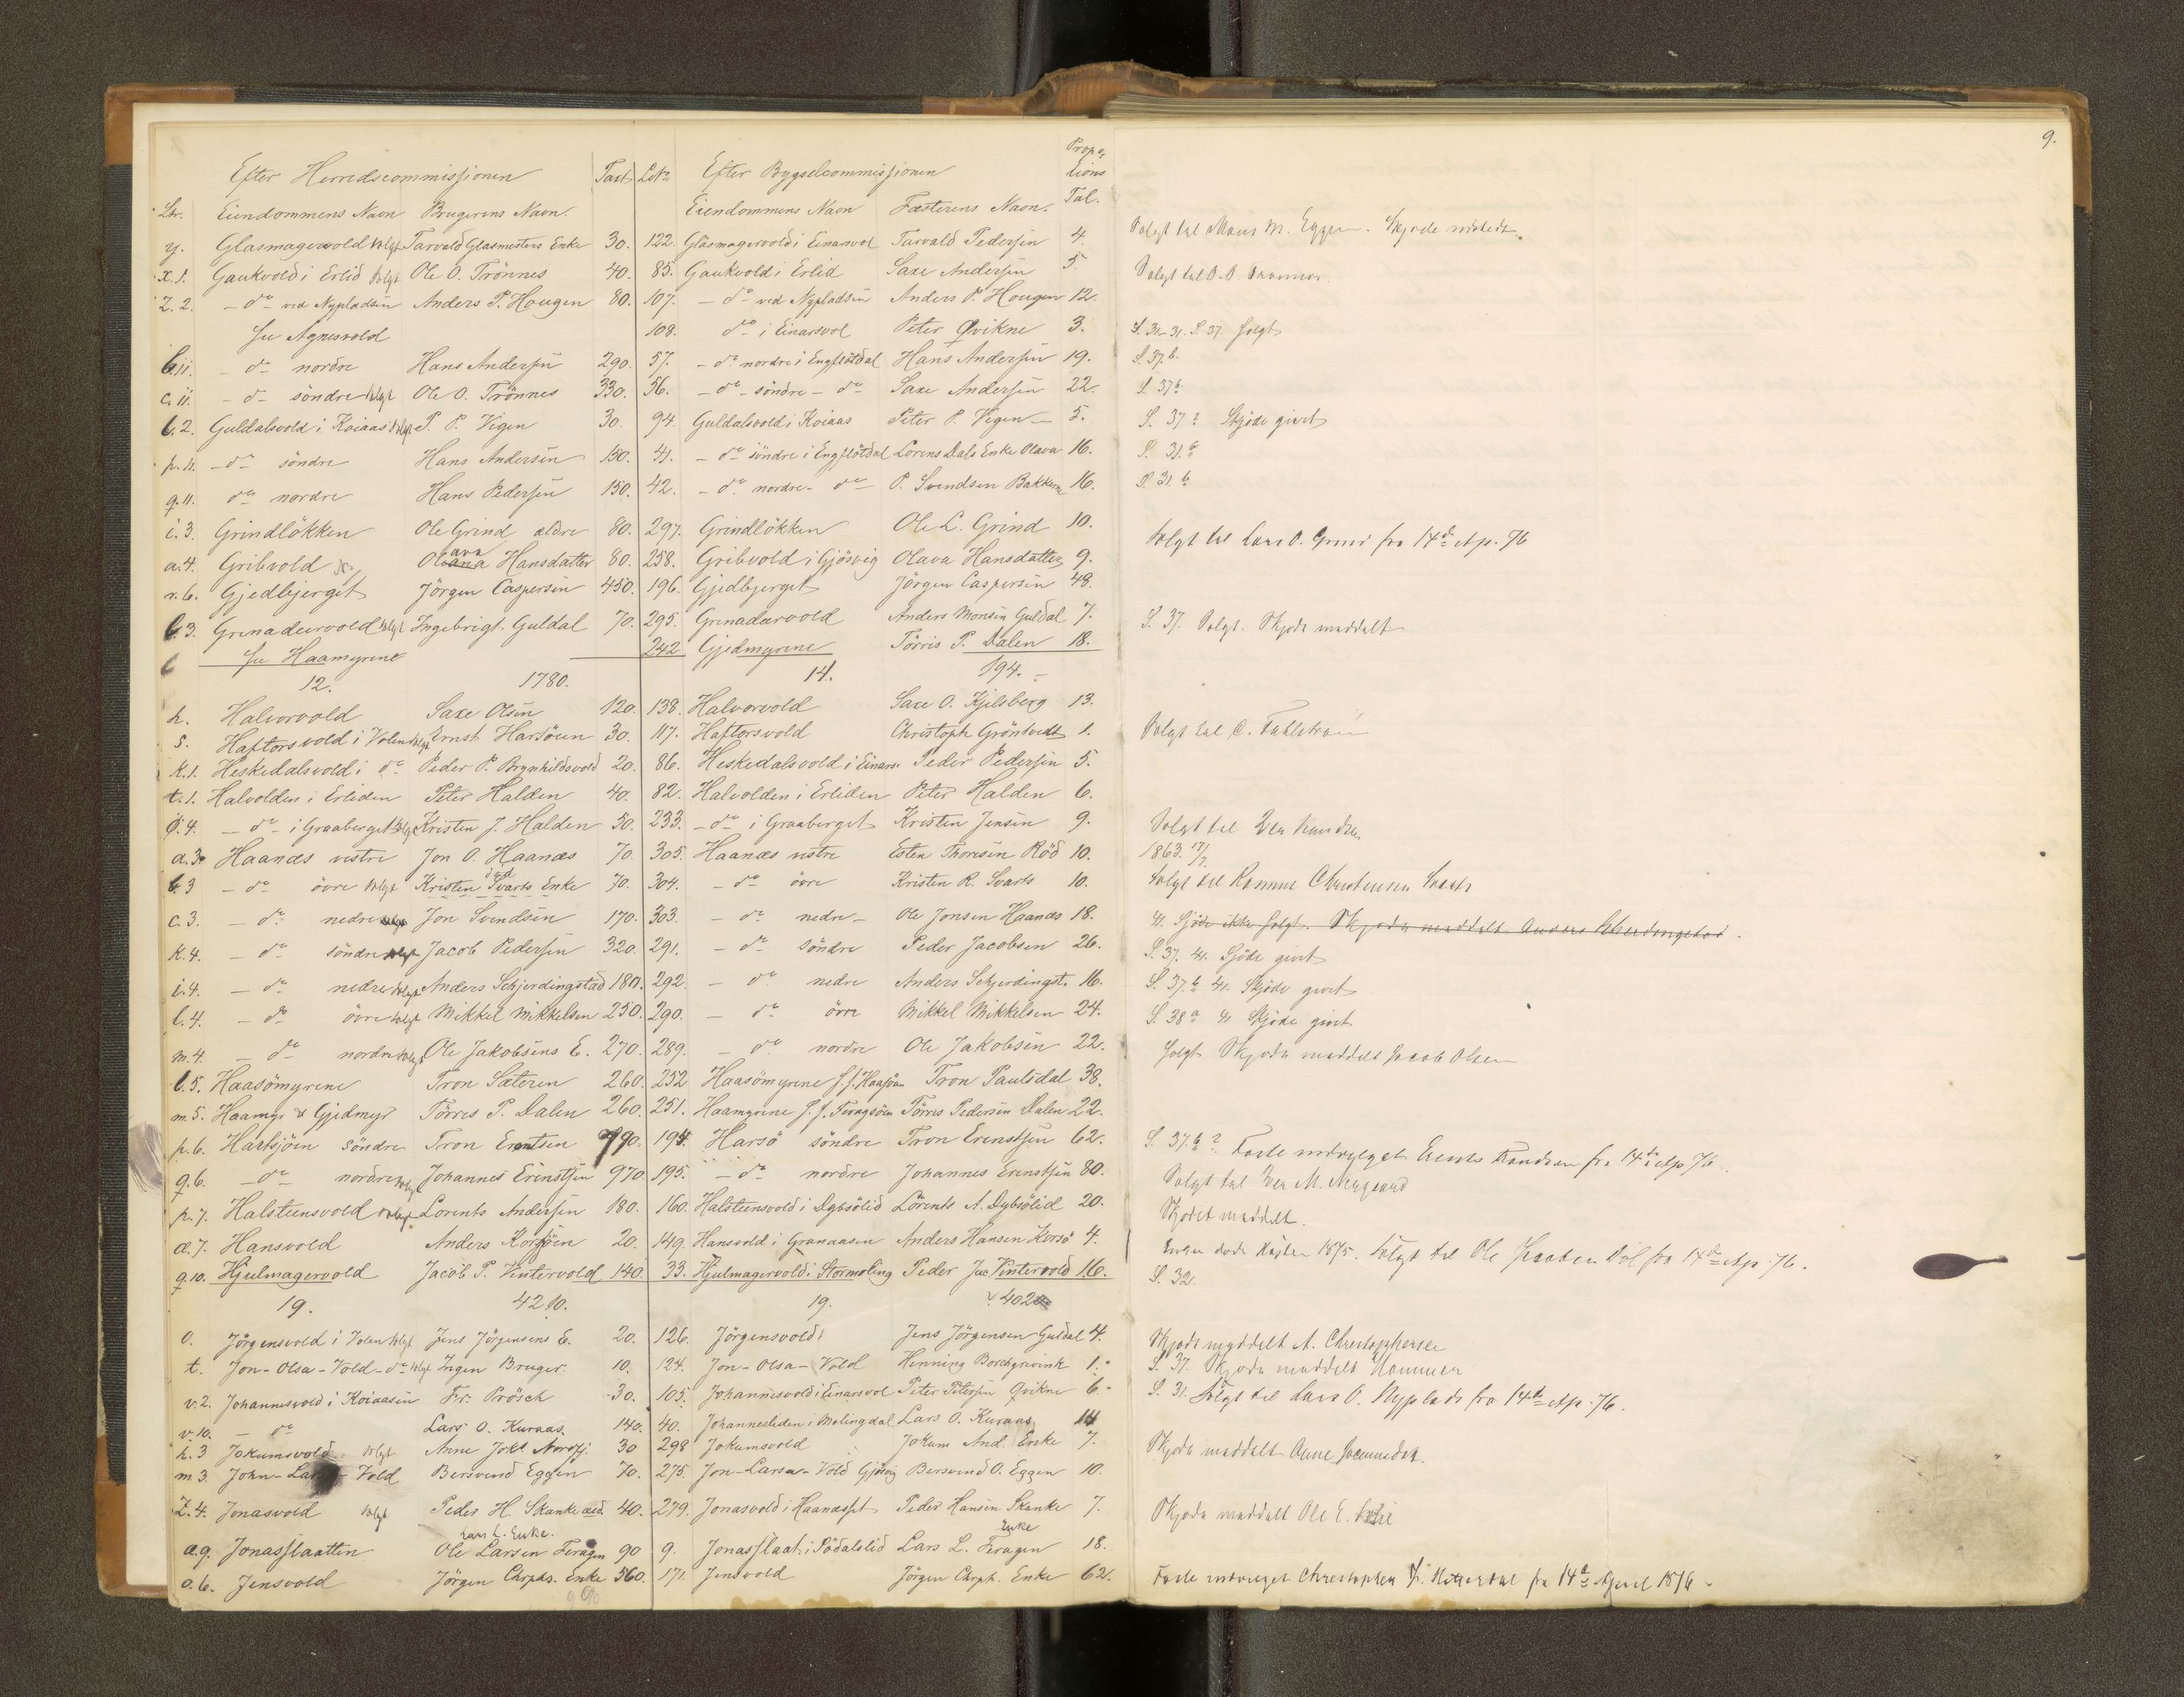 9.
Efter Herredscommissionen Taxt Lbr Efter Bygselcommissionen Propor
tions
Lbr. Eiendommens Navn Brugerens Navn. Eiendommens Navn Fæsterens Navn. Tal.
y. Glasmagervold solgt Tarvald Glasmesters Enke 30. 122. Glasmagervold i Einarsvol Tarvald Pedersen 4. Solgt til Mons M. Eggen. Skjøde udstedt.
x.1. Gaukvold i Erlid solgt Ole O. Trönnes 40. 85. Gaukvold i Erlid Saxe Andersen 5. Solgt til O. O.
z.2. - do ved Nypladsen Anders P. Hougen 80. 107. - do ved Nypladsen Anders P. Hougen 12.
se Agnesvold 108. do i Einarsvol Peter Qvikne 3. S. 31-31. S. 37. solgt
b.11. - do nordre Hans Andersen 290. 57. - do nordre i Engflötdal Hans Andersen 19. S. 37.b.
c.11. - do söndre solgt Ole O. Trönnes 330. 56. - do söndre - do Saxe Andersen 22. S. 37b.
b.2. Guldalsvold i Koiaas solgt P. P. Vigen 30. 94. Guldalsvold i Koiaas Peter P. Vigen 5. S. 37? Skjöde givet
p.11. - do söndre Hans Andersen 150. 41. - do söndre i Engflötdal Lorens Dals Enke Olava 16. S. 31.b
q.11. do nordre Hans Pedersen 150. 42. - do nordre - do P. Svendsen Bakken 16. S. 31.b
i.3. Grindlökken Ole Grind ældre 80. 297. Grindlökken Ole L. Grind 10. Solgt til Lars O. Grind fra 14de Ap. 76
a.4. Gribvold Olava Hansdatter 80. 258. Gribvold i Gjösvig Olava Hansdatter 9.
r.6. Gjedbjerget Jörgen Caspersen 450. 196. Gjedbjerget Jörgen Caspersen 48.
b.3. Grenadeervold solgt Ingebrigt Guldal 70. 295. Grenadeervold Anders Monsen Guldal 7. S. 37. Solgt. Skjøde meddelt
se Haamyrene 242 Gjedmyrene Törris P. Dalen 18.
12. 1780. 14. 194.
h. Halvorvold Saxe Olsen 120. 138. Halvorvold Saxe O. Kjelsberg 13.
s. Haftorsvold i Volen solgt Ernst Harsöen 30. 117. Haftorsvold Christoph Gröntvedt 1. Solgt til C.
k.1. Heskedalsvold i do Peder P. Brynhildsvold 20. 86. Heskedalsvold i Einars. Peder Pedersen 5.
t.1. Halvolden i Erliden Peter Halden 40. 82. Halvolden i Erliden Peter Halden 6.
ö.4. - do i Graaberget solgt Kristen J. Halden 50. 233. - do i Graaberget Kristen Jensen 9. Solgt til
a.3. Haanæs vestre Jon O. Haanæs 70. 305. Haanæs vestre Esten Thoresen Röd 10. 1863. 17/7.
b.3 - do övre solgt Kristen Svarts Enke död 70. 304. - do övre Kristen R. Svarts 10. Solgt til Rasmus Christensen Svarts
c.3. - do nedre solgt Jon Svendsen 170. 303. - do nedre - Ole Jonsen Haanæs 18. 41. Sjöde ikke solgt. Skjøde meddelt Anders Schjerdingstad.
k.4. - do söndre solgt Jacob Pedersen 320. 291. - do söndre Peder Jacobsen 26. S. 37. 41. Sjöde givet
i.4. - do nedre solgt Anders Schjerdingstad 180. 292. - do nedre Anders Schjerdingst. 16. S. 37.b 41. Skjöde givet
l.4. - do övre solgt Mikkel Mikkelsen 250. 290. - do övre Mikkel Mikkelsen 24. S. 38a 41 Skjöde givet
m.4. - do nordre solgt Ole Jakobsens E. 270. 289. - do nordre Ole Jakobsen 22. Solgt Skjøde meddelt Jacob Olsen
l.5. Haasömyrene Tron Sæteren 260. 252 Haasömyrene f. f. Haasöen Tron Paulsdal 38.
m.5. Haamyr & Gjedmyr Törres P. Dalen 260. 251. Haamyrene f. f. Feragsöen Törres Pedersen Dalen 22.
p.6. Harsjöen söndre Tron Erentsen 790. 194. Harsö söndre Tron Erenstsen 62. S. 37.b? Fæste Trondsen fra 14de Ap 76.
q.6. - do nordre solgt Johannes Erenstsen 970. 195. - do nordre Johannes Erenstsen 80. Solgt til M. Nygaard
p.7. Halsteensvold solgt Lorents Andersen 180. 160. Halsteensvold i Dybsölid Lörents A. Dybsölid 20. Skjødet meddelt.
æ.7. Hansvold Anders Korsjöen 20. 149. Hansvold i Granaasen Anders Hansen Korsö 4. Enken døde 1875. Solgt til Ole fra 14de Ap. 76.
q.10. Hjulmagervold Jacob P. Vintervold 140. 33. Hjulmagervold i Stormoling Peder Jac Vintervold 16. S. 32.
19. 4210. 19. 402
o. Jörgensvold i Volen solgt Jens Jörgensens E. 20. 126. Jörgensvold Jens Jörgensen Guldal 4. Skjøde meddelt A. Christophersen
t. Jon-Olsa-Vold - do solgt Ingen Bruger 10. 124. Jon-Olsa-Vold Henning Borchgrevink 1. S. 37. Skjøde meddelt Hammer
v.2. Johannesvold i Koiaasen Fr. Prösch 30. 105. Johannesvold i Einarsvol Peter Petersen Qvikne 6. S. 31. Solgt til Lars O. Nyplads fra 14de Ap. 76.
v.10. - do Lars O. Kuraas. 140. 40. Johannesliden i Molingdal Lars O. Kuraas 14
h.3 Jokumsvold solgt Anne Jokt Nordfj. 30 298 Jokumsvold Jokum And. Enke 7. Skjøde meddelt Anne
m.3. John-Lars- Vold Bersvend Eggen 70. 275. Jon-Larsa-Vold Gjösvig Bersvend O. Eggen 10.
z.4. Jonasvold solgt Peder H. Skanke æld. 40. 279. Jonasvold i Haanæsset Peder Hansen Skanke 7. Skjøde meddelt Ole E.
Lars L. Enke. Enke
æ.9. Jonasslaatten Ole Larsen Feragen 90 9. Jonasslaat i Södalslid Lars L. Feragen 18.
o.6. Jensvold Jörgen Chrphs. Enke 560. 171. Jensvold Jörgen Chrph. Enke 62. Fæste Christopher J. fra 14de April 1876.